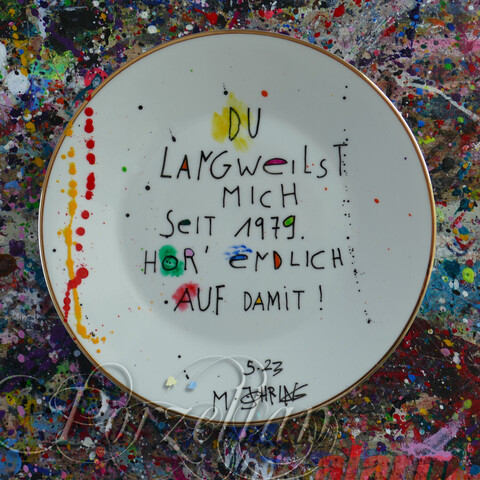 DU
LANGWEILST
MICH
SEIT 1979.
HÖR' ENDLICH
AUF DAMIT!
5.23
M.
Porzellan